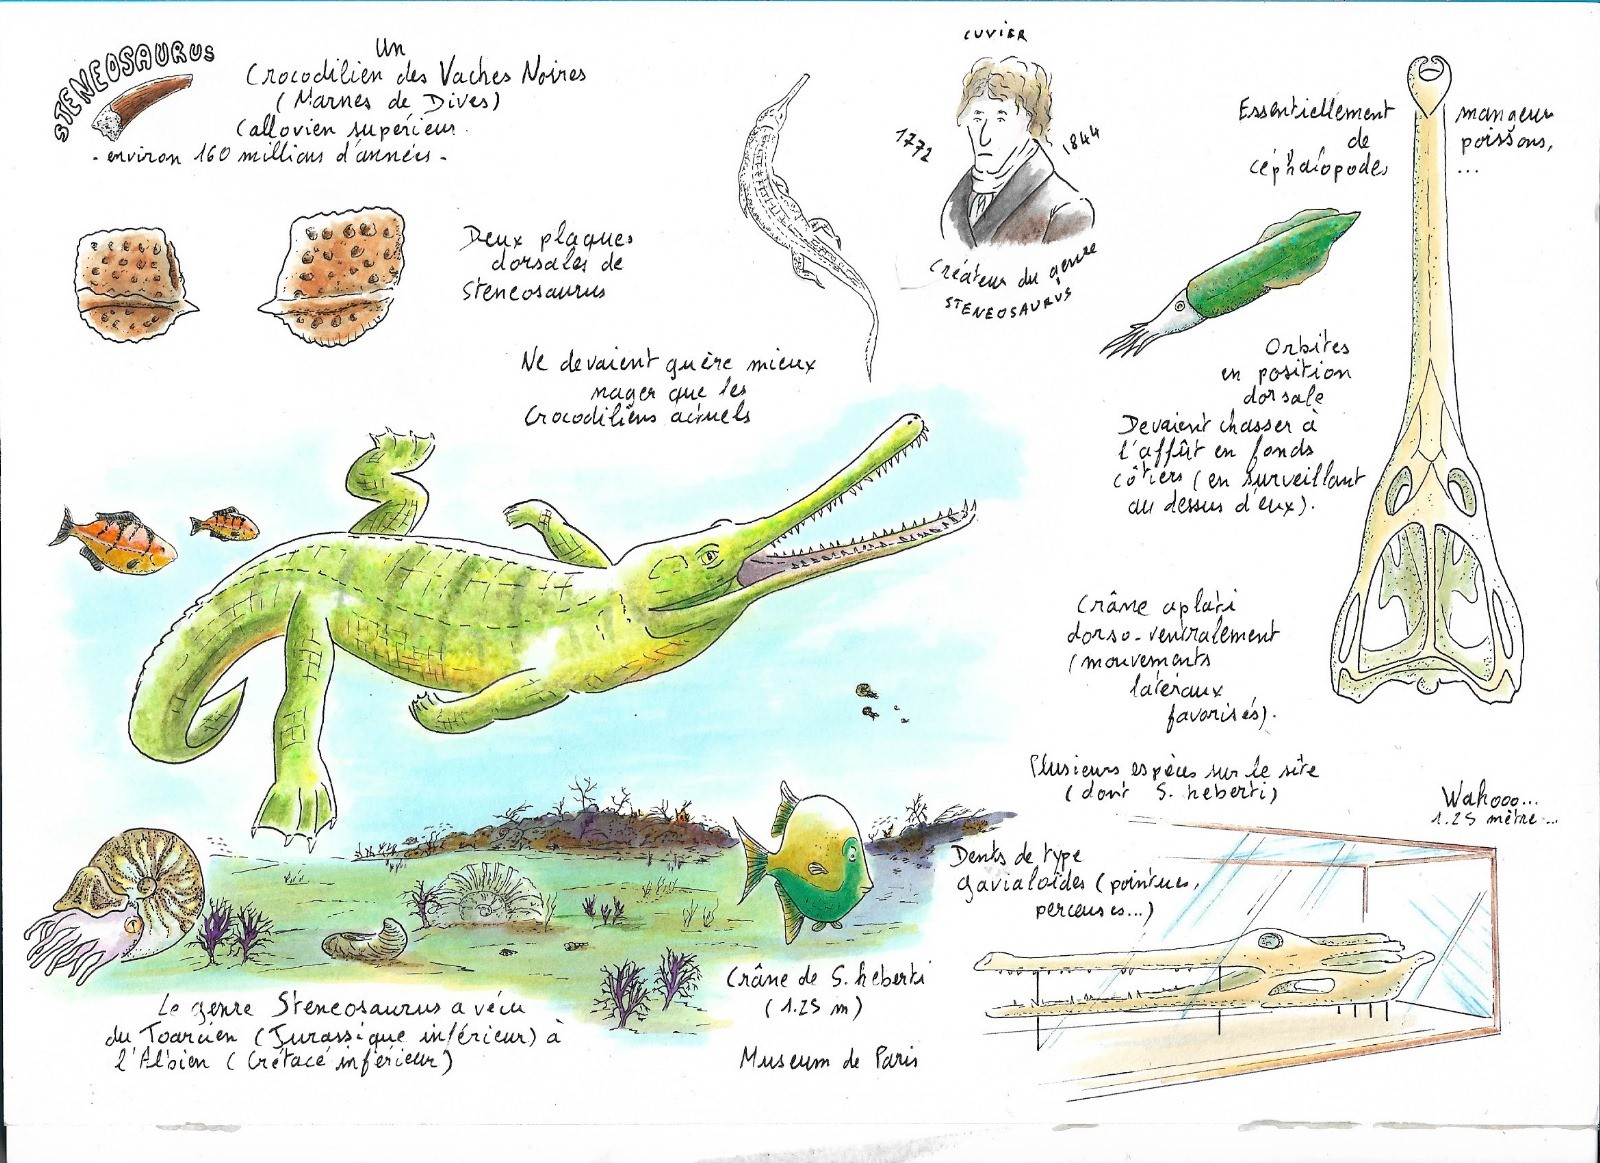 STENEOSAURUS
Un
Crocodilien des Vaches Noires
(Marnes de Dives)
Callovien supérieur.
- environ 160 millions d'années -
Deux plaques
dorsales de
Steneosaurus
Ne devaient guère mieux
nager que les
Crocodiliens actuels
CUVIER
1772
1844
Créateur du genre
STENEOSAURUS
Essentiellement mangeur
de poissons,
céphalopodes ...
Orbites
en position
dorsale
Devaient chasser à
l'affût en fonds
côtiers (en surveillant
au dessus d'eux).
Crâne aplati
dorso-ventralement
(mouvements
latéraux
favorisés).
Plusieurs espèces sur le site
(dont S. heberti)
Wahooo...
1.25 mètre...
Dents de type
gavialoïdes (pointues,
perceuses...)
Crâne de S. heberti
(1.25 m)
Museum de Paris
Le genre Steneosaurus a vécu
du Toarcien (Jurassique inférieur) à
l'Albien (Crétacé inférieur)